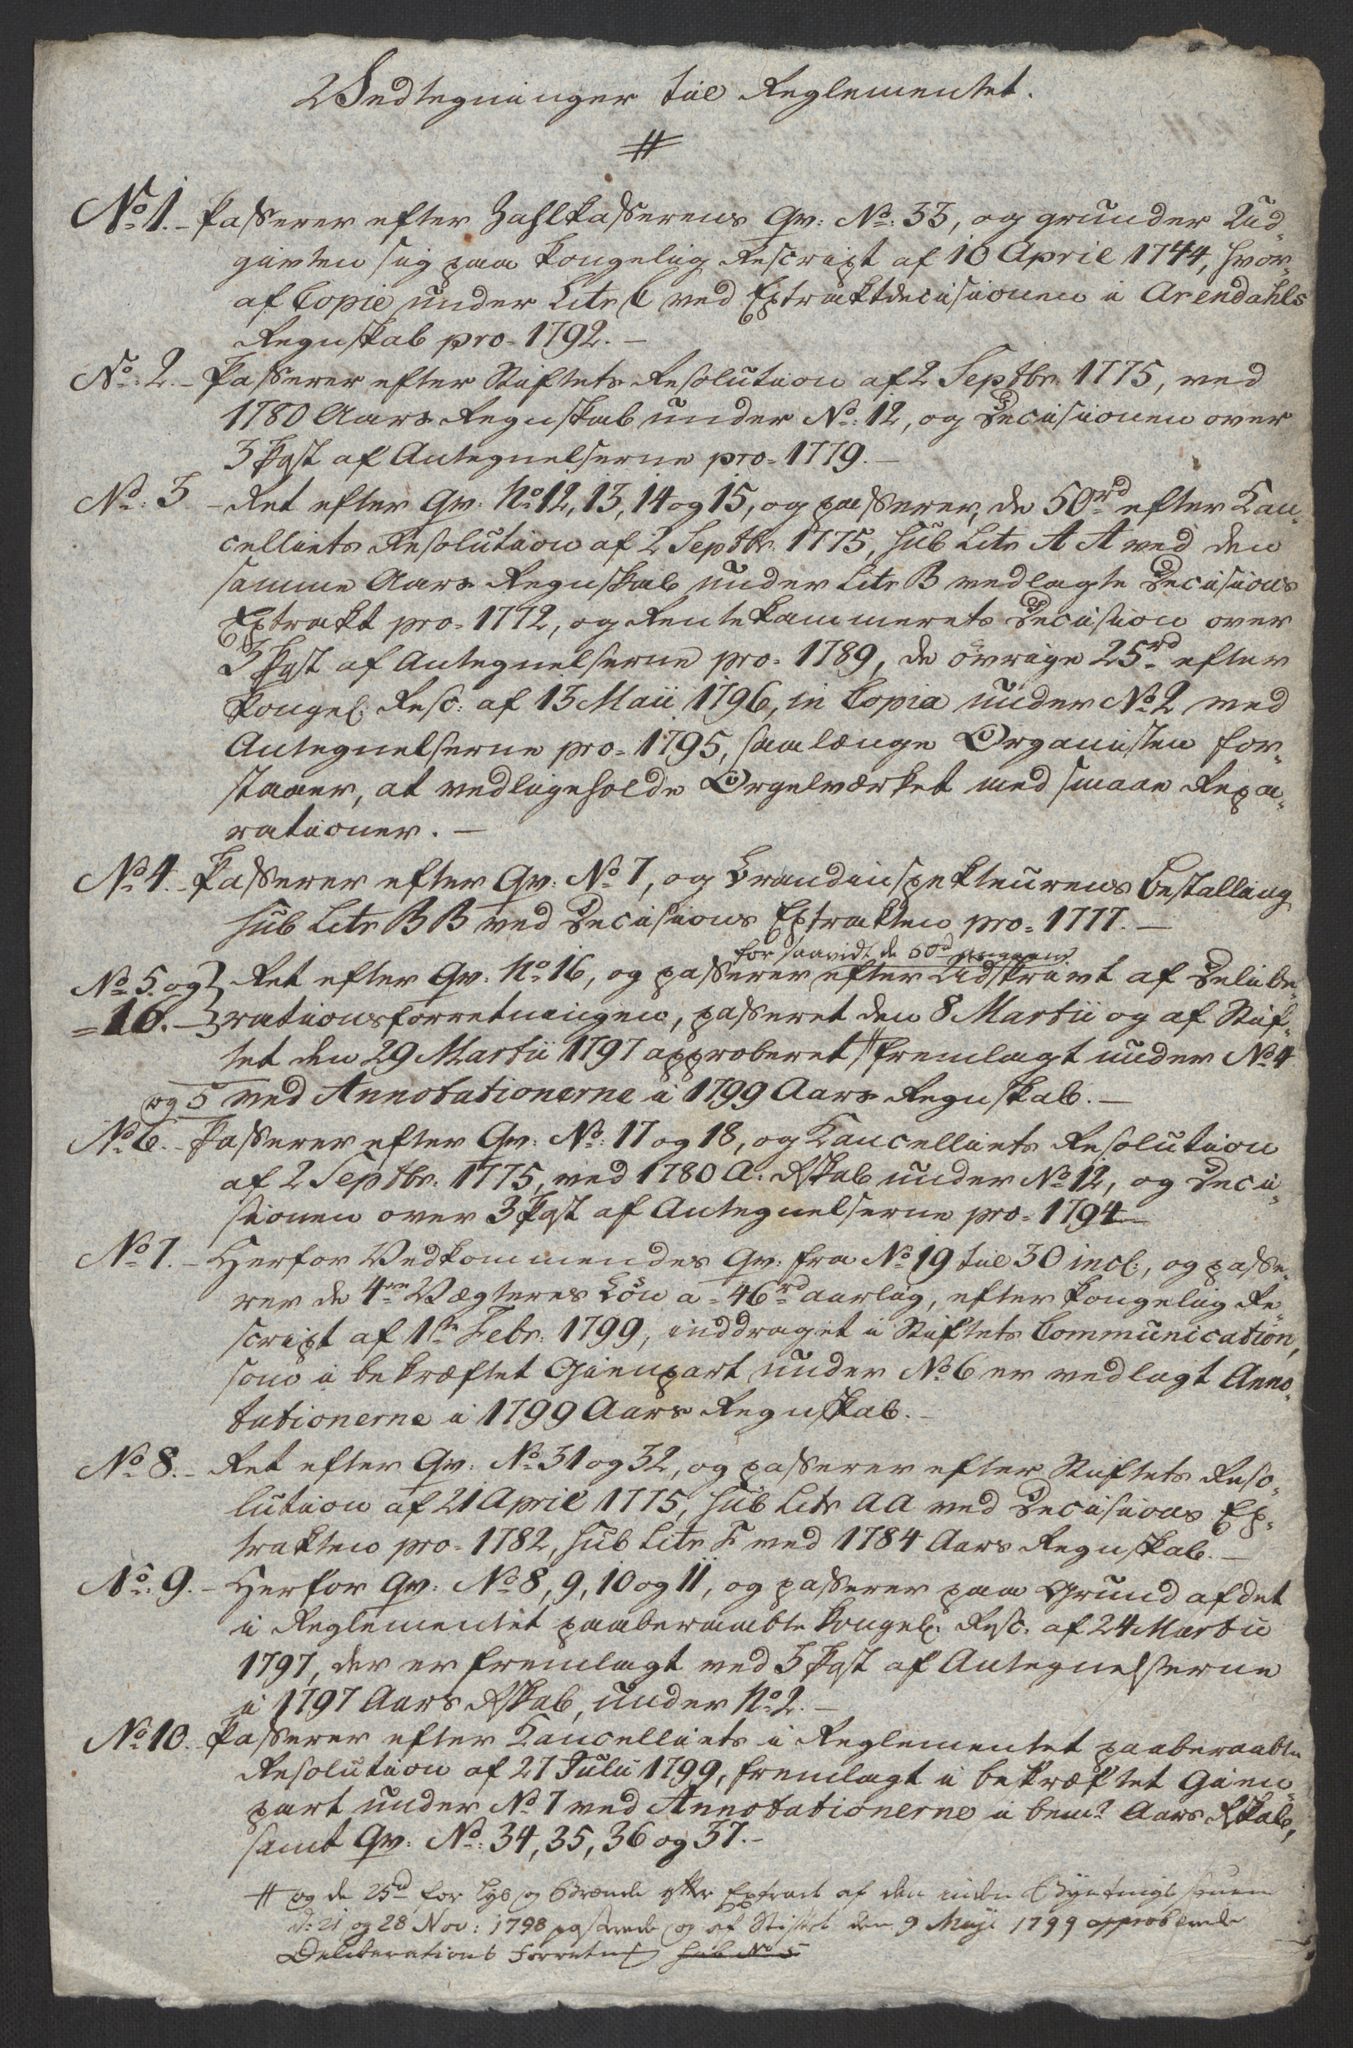 Vedtegninger til Reglementet.
#
No. 1. - Passerer efter Zahlkasserens Qv: No: 33, og grunder Ud-
giften sig paa kongelig Rescript af 10 April 1744, hvor-
af Copie under Litr C ved Extraktdecisionen i Arendahls
Regnskab pro 1792. -
No: 2. - Passerer efter Stiftets Resolution af 2 Septbr 1775, ved
1780 Aars Regnskab under No: 12, og Decisionen over
3 Post af Antegnelserne pro 1779. -
No: 3 - Ret efter Qv: No 12, 13, 14 og 15, og passerer, de 50rd efter Can-
celliets Resolution af 2 Septbr 1775, sub Litr A A ved den
samme Aars Regnskab under Litr B vedlagte Decisions
Extrakt pro 1772, og Rentekammerets Decision over
3 Post af Antegnelserne pro 1789, de övrige 25rd efter
kongel: Resc: af 13 Maii 1796, in Copia under No 2 ved
Antegnelserne pro 1795, saalænge Organisten for-
staaer, at vedligeholde Orgelværket med smaae Repa-
rationer. -
No 4. - Passerer efter Qv: No 7, og Brandinspekteurens Bestalling
sub Litr B B ved Decisions Extrakten pro 1777. -
for saavidt de 60rd
No 5. og } Ret efter Qv: No 16, og passerer efter Udskrivt af Delibe-
= 16. - } rationsforretningen, passeret den 8 Martii og af Stif-
tet den 29 Martii 1797 approberet # fremlagt under No 4
og 5 ved Annotationerne i 1799 Aars Regnskab. -
No 6. - Passerer efter Qv: No: 17 og 18, og Cancelliets Resolution
af 2 Septbr. 1775, ved 1780 A: Rskab under No 12, og Deci-
sionen over 3 Post af Antegnelserne pro 1794 -
No 7. - Herfor Vedkommendes Qv: fra No 19 til 30 incl:, og passe-
rer de 4re Vægteres Lön a 46rd aarlig, efter kongelig Re-
script af 1ste Febr: 1799, inddraget i Stiftets Communication,
som i bekræftet Gienpart under No 6 er vedlagt Anno-
tationerne i 1799 Aars Regnskab. -
No 8. - Ret efter Qv: No 31 og 32, og passerer efter Stiftets Reso-
lution af 21 April 1775, sub Litr AA ved Decisions Ex-
trakten pro 1782, sub Litr F ved 1784 Aars Regnskab. -
No: 9. - Herfor Qv: No 8, 9, 10 og 11, og passerer paa Grund af det
i Reglementet paaberaabte kongel: Resc: af 24 Martii
1797, der er fremlagt ved 3 Post af Antegnelserne
i 1797 Aars Rskab, under No 2. -
No 10. Passerer efter Cancelliets i Reglementet paaberaabte
Resolution af 27 Julii 1799, fremlagt i bekræftet Gien-
part under No 7 ved Annotationerne i bemte Aars Rskab,
samt Qv: No: 34, 35, 36 og 37. -
# og de 25rd for Lys og Brænde efter Extract af den inden Bytings
d: 21 og 28 Nov: 1798 passerede og af Stiftet den 9 Maji 1799 approberede
Deliberations Forretng sub No 5